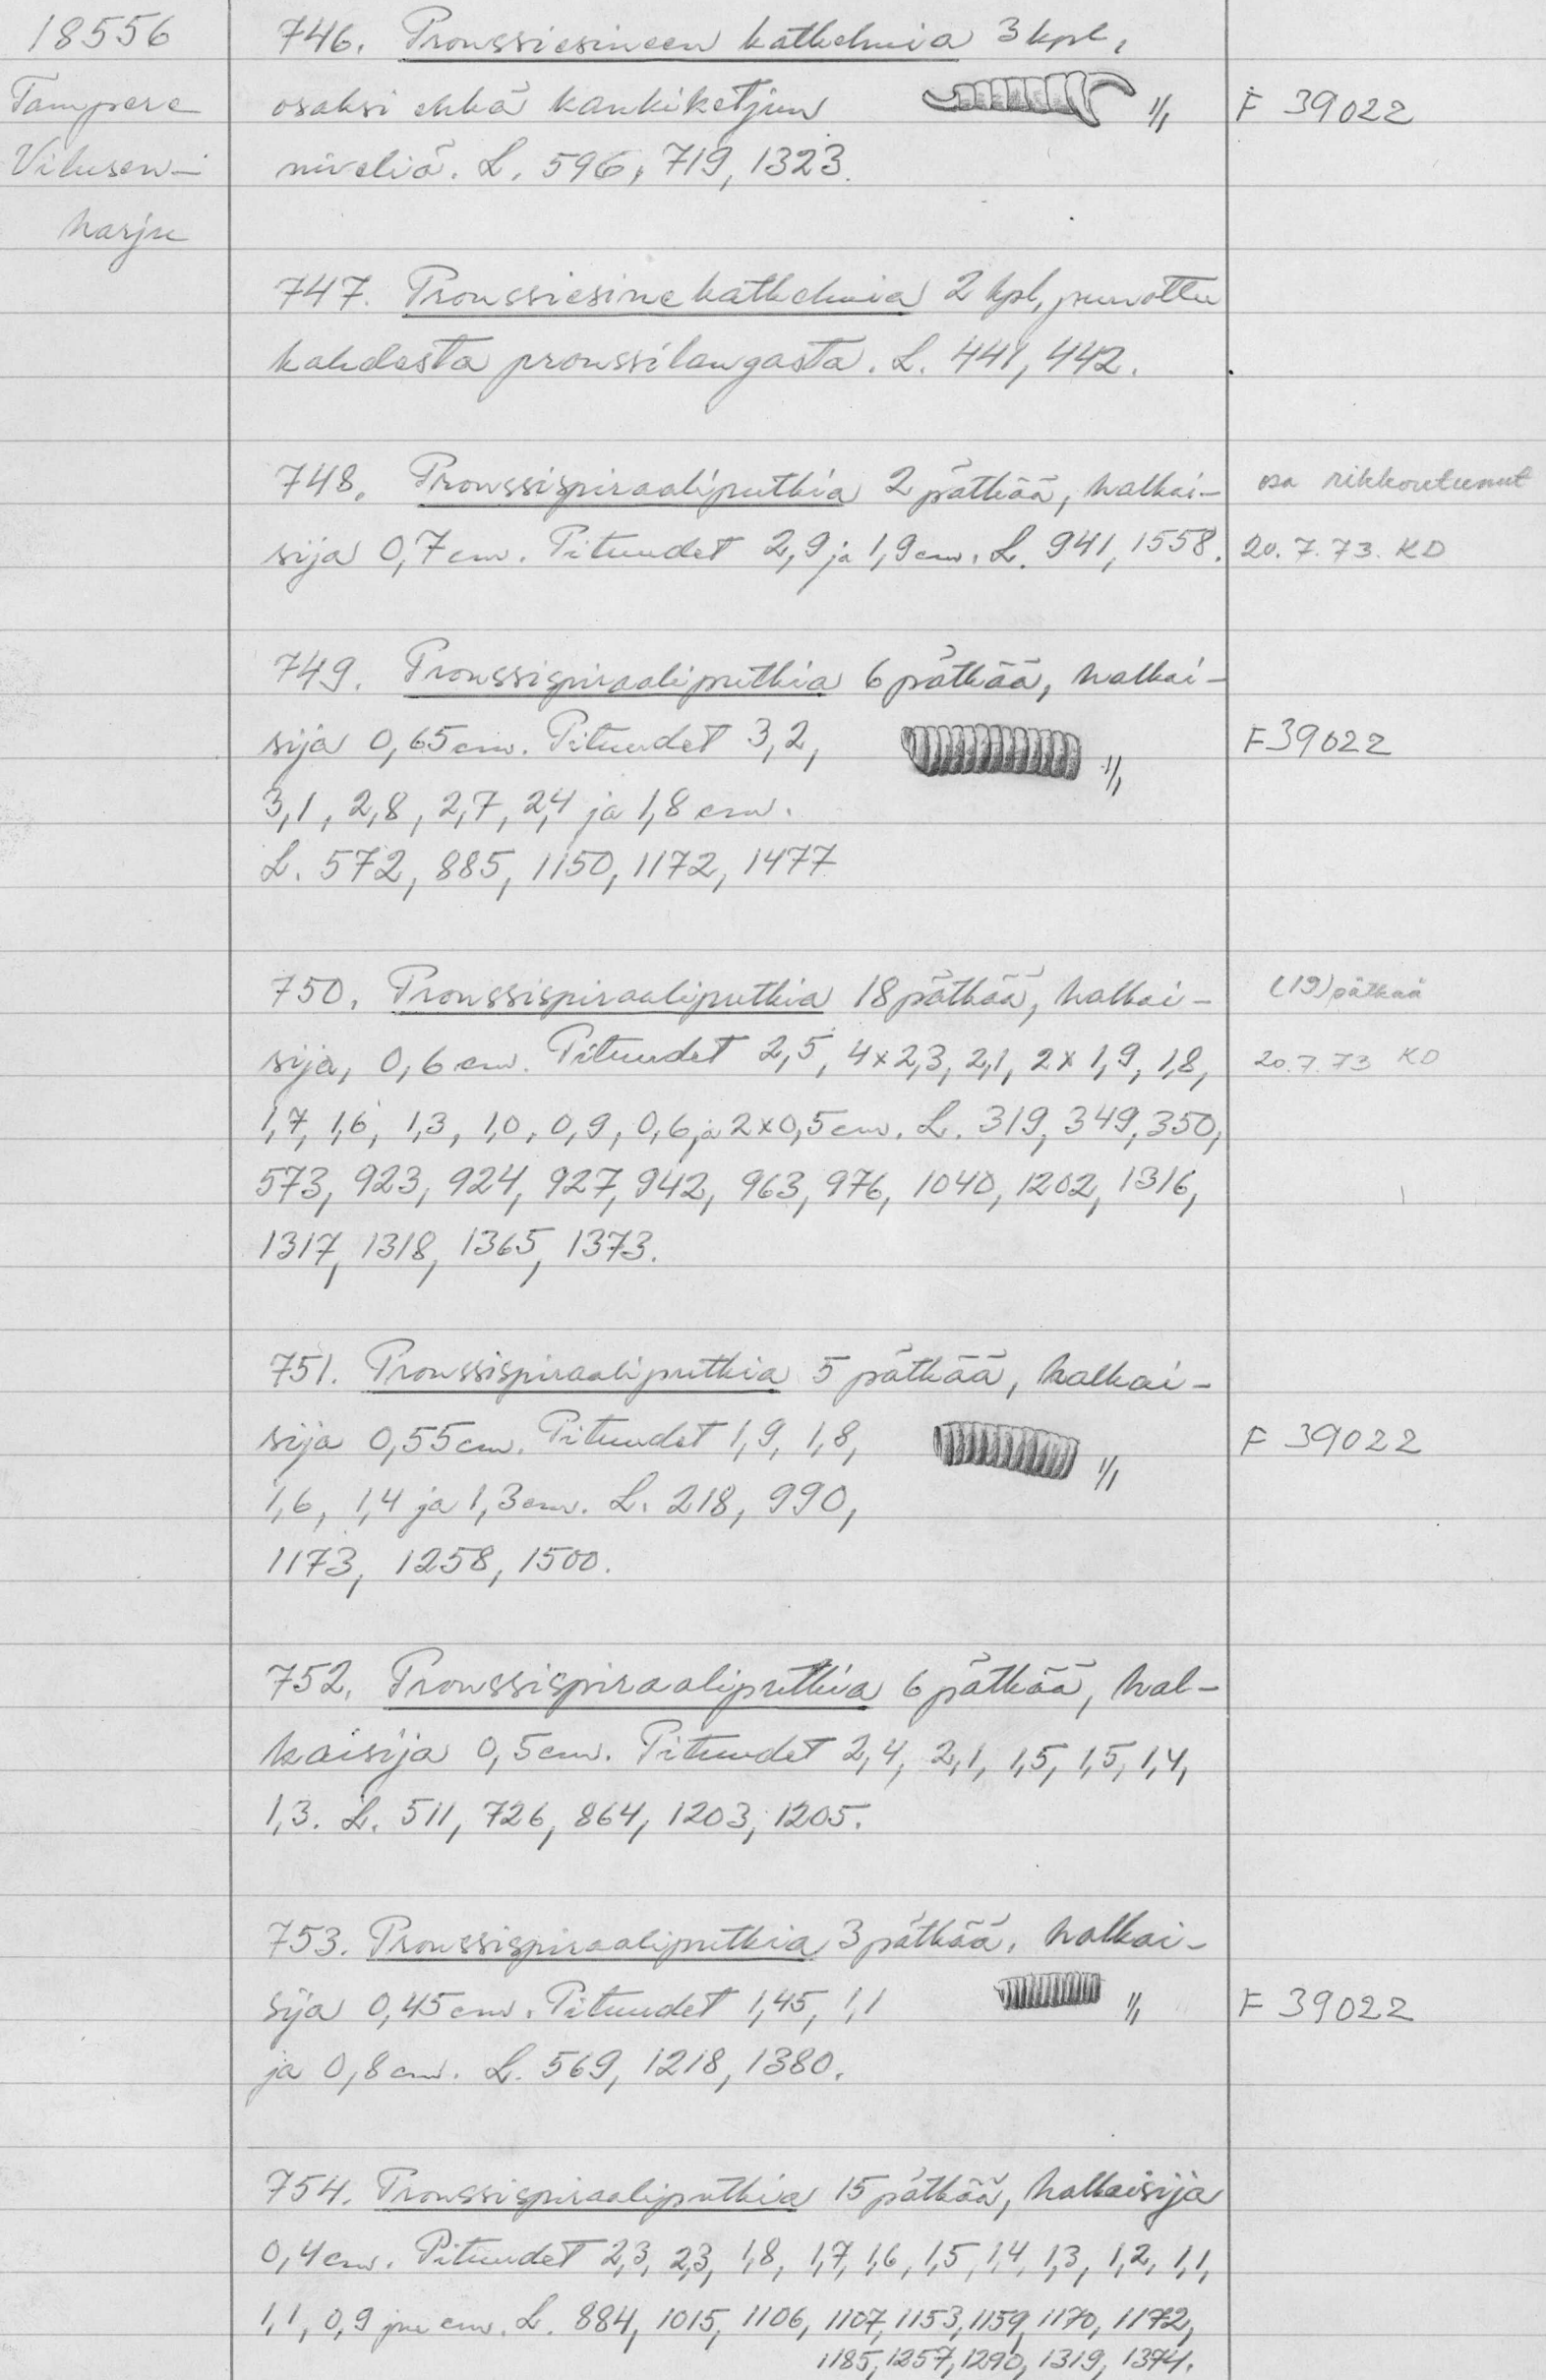 18556
Tampere
Vilusen-
harju
746. Pronssiesineen katkelmia 3 kpl,
osaksi ehkä kankiketjun 1/1 F 39022
niveliä. L. 596, 719, 1323.
747. Pronssiesinekatkelmia 2 kpl, punottu
kahdesta pronssilangasta. L. 441, 442.
748. Pronssispiraaliputkia 2 pätkää, halkai- osa rikkoutunut
sija 0,7 cm. Pituudet 2,9 ja 1,9 cm. L. 941, 1558. 20.7.73. KD
749. Pronssispiraaliputkia 6 pätkää, halkai-
sija 0,65 cm. Pituudet 3,2, 1/1 F 39022
3,1, 2,8, 2,7, 2,4 ja 1,8 cm.
L. 572, 885, 1150, 1172, 1477
750. Pronssispiraaliputkia 18 pätkää, halkai- (19) pätkää
sija, 0,6 cm. Pituudet 2,5, 4x2,3, 2,1, 2x1,9, 1,8, 20.7.73 KD
1,7, 1,6, 1,3, 1,0, 0,9, 0,6 ja 2x0,5 cm. L. 319, 349, 350,
573, 923, 924, 927, 942, 963, 976, 1040, 1202, 1316,
1317, 1318, 1365, 1373.
751. Pronssispiraaliputkia 5 pätkää, halkai-
sija 0,55 cm. Pituudet 1,9, 1,8, 1/1 F 39022
1,6, 1,4 ja 1,3 cm. L. 218, 990,
1173, 1258, 1500.
752. Pronssispiraaliputkia 6 pätkää, hal-
kaisija 0,5 cm. Pituudet 2,4, 2,1, 1,5, 1,5, 1,4,
1,3. L. 511, 726, 864, 1203, 1205.
753. Pronssispiraaliputkia 3 pätkää, halkai-
sija 0,45 cm. Pituudet 1,45, 1,1 1/1 F 39022
ja 0,8 cm. L. 569, 1218, 1380.
754. Pronssispiraaliputkia 15 pätkää, halkaisija
0,4 cm. Pituudet 2,3, 2,3, 1,8, 1,7, 1,6, 1,5, 1,4, 1,3, 1,2, 1,1,
1,1, 0,9 jne cm. L. 884, 1015, 1106, 1107, 1153, 1159, 1170, 1172,
1185, 1257, 1290, 1319, 1374.